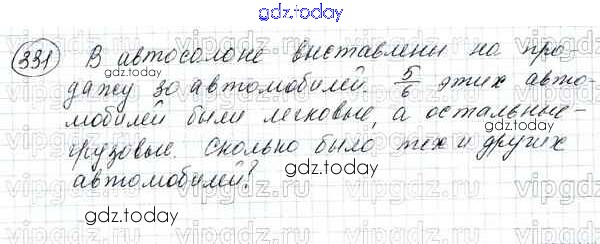 gdz.today
331 В автосалоне выставлены на про
дажу 30 автомобилей. 5/6 этих авто-
мобилей были легковые, а остальные -
грузовые. Сколько было тех и других
автомобилей?
gdz.today
gdz.today
gdz.today
gdz.today
vipgdz